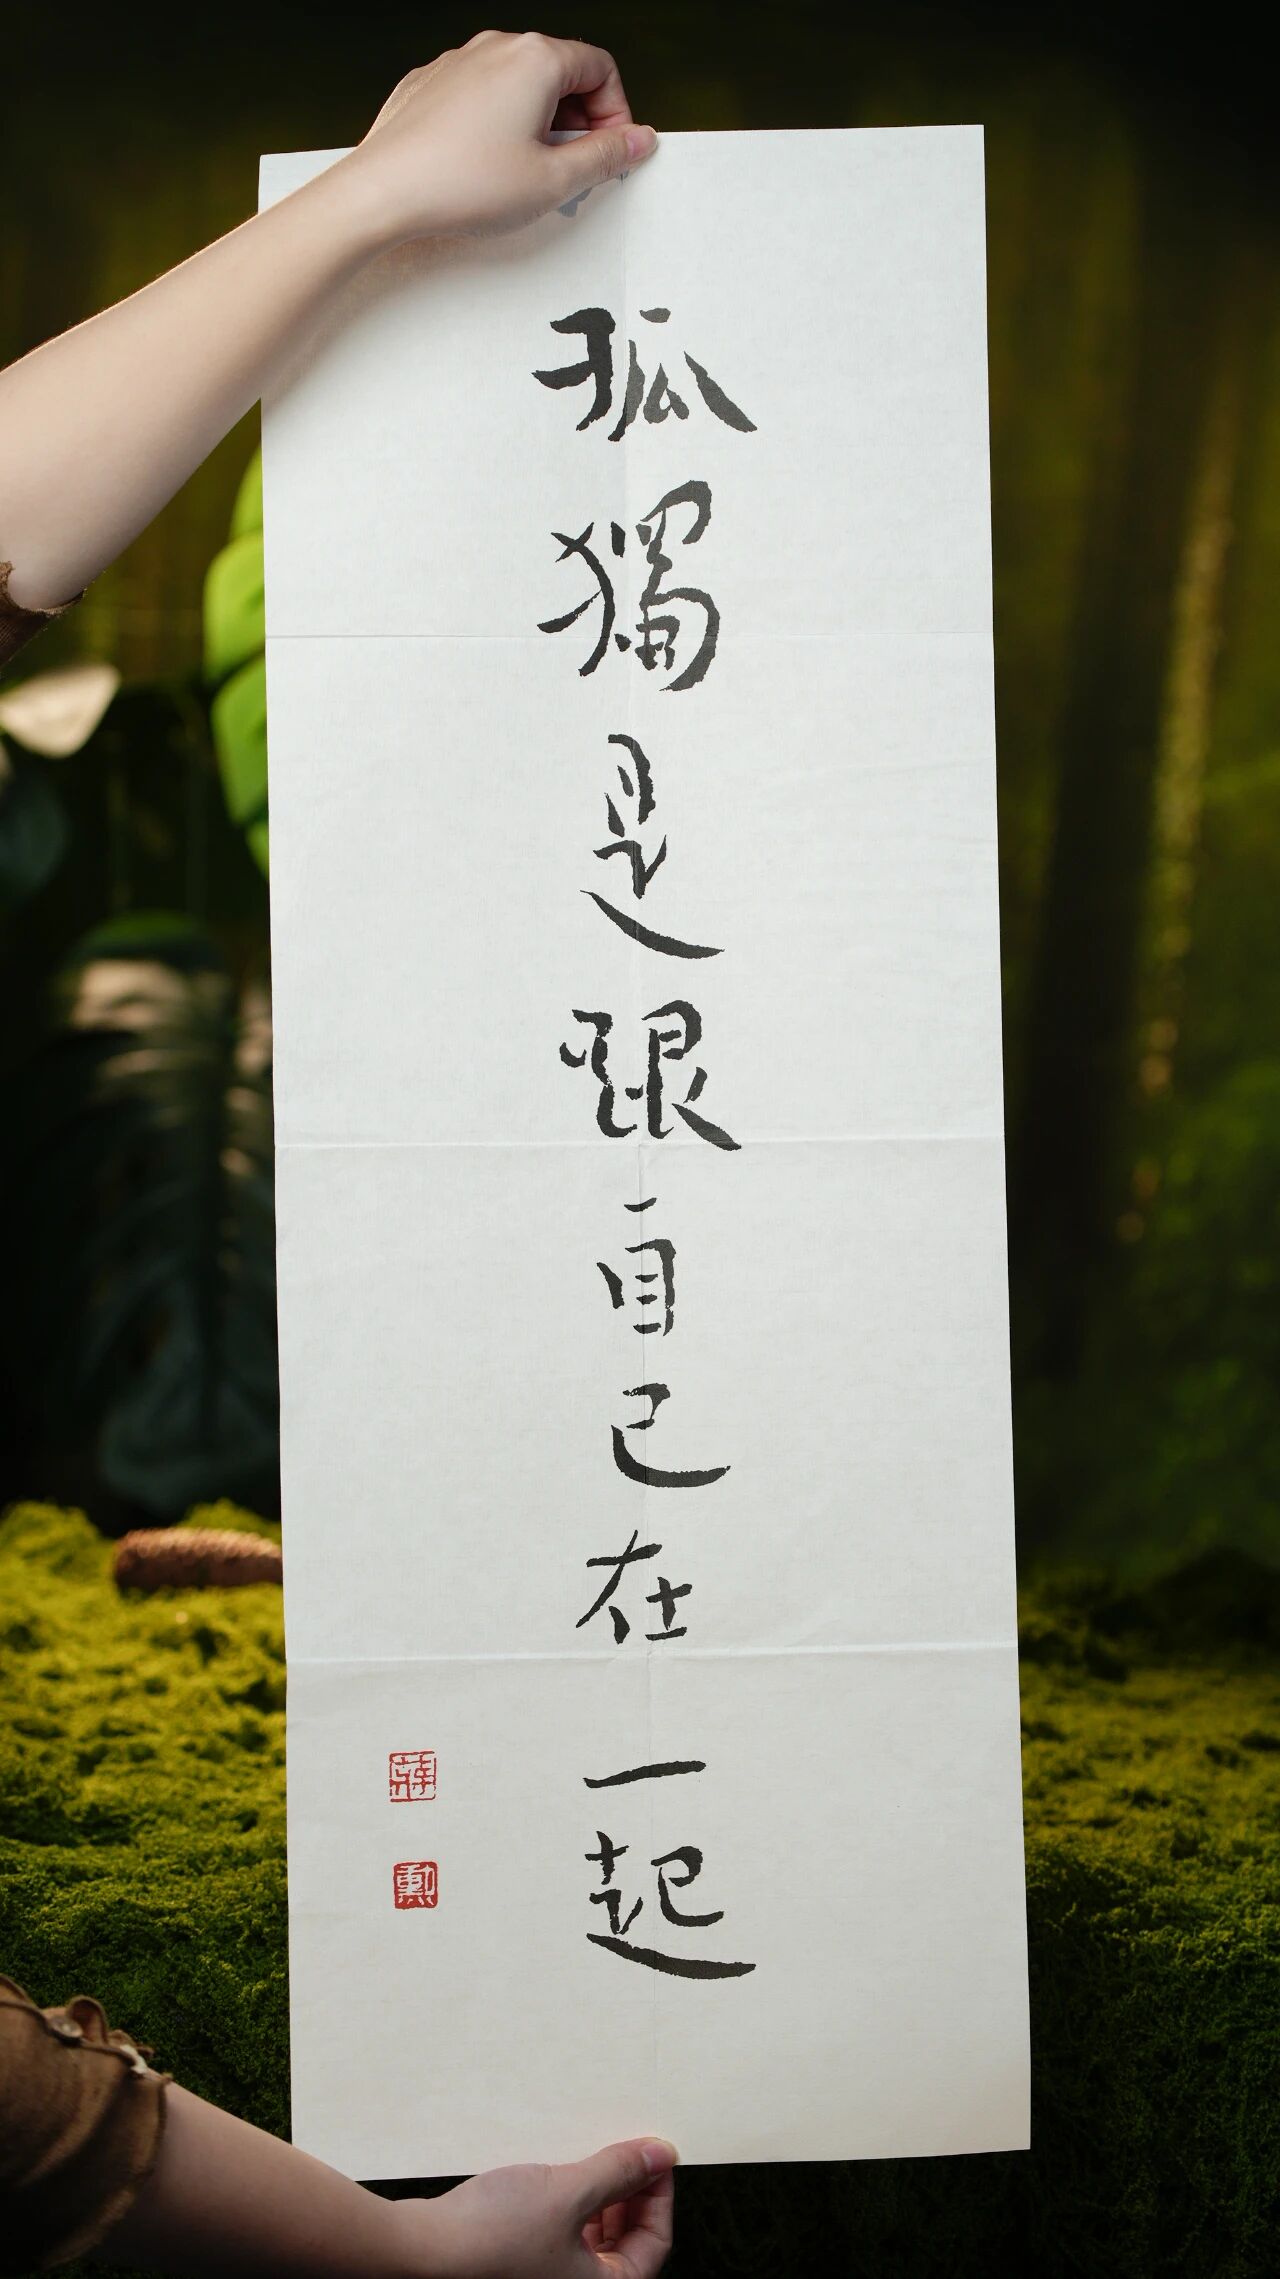 孤獨是跟自己在一起
蔣
勳